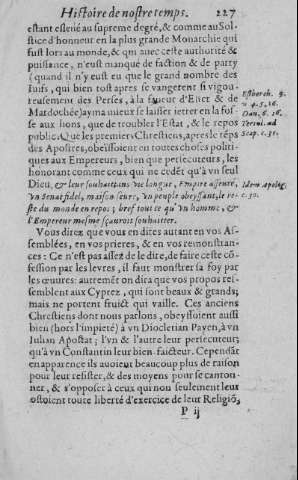 Histoire de nostre temps. 227
estant esleué au supreme degré, & comme au Sol-
stice d'honneur en la plus grande Monarchie qui
fust lors au monde, & qui auec ceste authorité &
puissance, n'eust manqué de faction & de party
(quand il n'y eust eu que le grand nombre des
Iuifs, qui bien tost apres se vangerent si vigou-
reusement des Perses, à la faueur d'Ester & de
Mardochée) ayma mieux se laisser jetter en la fos-
se aux lions, que de troubler l'Estat, & le repos
public. Que les premiers Chrestiens, apres le têps
des Apostres, obeïssoient en toutes choses politi-
ques aux Empereurs, bien que persecuteurs, les
honorant comme ceux qui ne cedêt qu'à vn seul
Dieu, & leur souhaittans vie longue, Empire asseuré,
vn Senat fidel, maison seure, vn peuple obeyssant, le re-
ste du monde en repos; bref tout ce qu'vn homme, &
l'Empereur mesme sçauroit souhaitter.
Esther ch. 9.
v. 4. 5. 16.
Dan. 6. 16.
Tertul. ad
Scap. c. 31.
Idem Apolog.
c. 30.
Vous direz que vous en dites autant en vos As-
semblées, en vos prieres, & en vos remonstran-
ces: Ce n'est pas assez de le dire, de faire ceste cô-
fession par les levres, il faut monstrer sa foy par
les œuures: autremêt on dira que vos propos res-
semblent aux Cyprez, qui sont beaux & grands;
mais ne portent fruict qui vaille. Ces anciens
Chrestiens dont nous parlons, obeyssoient aussi
bien (hors l'impieté) à vn Diocletian Payen, à vn
Iulian Apostat; l'vn & l'autre leur persecuteur;
qu'à vn Constantin leur bien-faicteur. Cependât
en apparence ils auoient beaucoup plus de raison
pour leur resister, & des moyens pour se canton-
ner, & s'opposer à ceux qui non seulement leur
ostoient toute liberté d'exercice de leur Religiô,
P ij